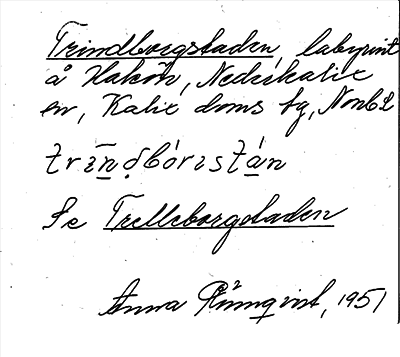 Trindborgstaden, labyrint
å Hakön, Nederkalix
sn, Kalix doms tg, Nonb L
trīndbórıstán
Se Trelleborgstaden
Anna Rönnqvist, 1951